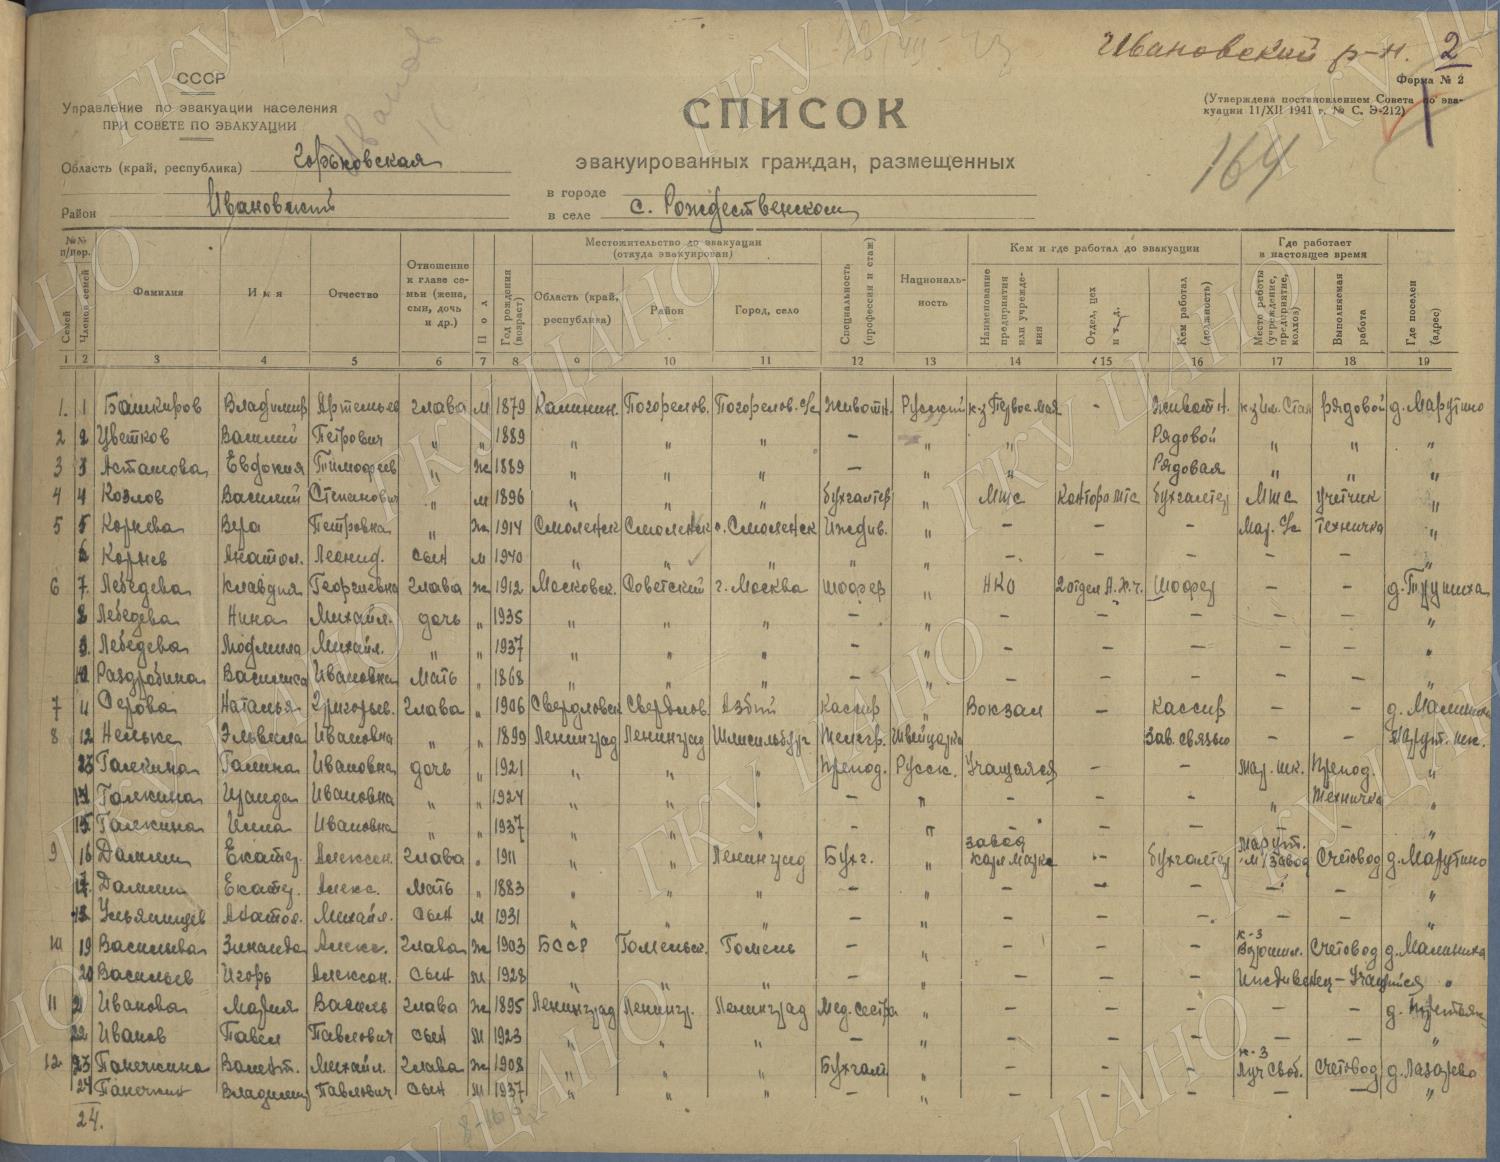 Ивановский р-н. 2
СССР
Форма № 2
Управление по эвакуации населения
ПРИ СОВЕТЕ ПО ЭВАКУАЦИИ
СПИСОК
(Утверждена постановлением Совета по эва-
куации 11/XII 1941 г. № С. Э-212)
164
Область (край, республика) Горьковская
эвакуированных граждан, размещенных
Район Ивановский
в городе
в селе с. Рождественском
№№ п/пор. Семей Членов семей Фамилия Имя Отчество Отношение к главе се- мьи (жена, сын, дочь и др.) Пол Год рождения (возраст) Местожительство до эвакуации (откуда эвакуирован) Область (край, республика) Район Город, село Специальность (профессия и стаж) Националь- ность Кем и где работал до эвакуации Наименование предприятия или учрежде- ния Отдел, цех и т. д. Кем работал (должность) Где работает в настоящее время Место работы (учреждение, предприятие, колхоз) Выполняемая работа Где поселен (адрес)
1 2 3 4 5 6 7 8 9 10 11 12 13 14 15 16 17 18 19
1. 1 Башкиров Владимир Артемьев глава м 1879 Калинин. Погорелов. Погорелов. с/с Животн. Русский к-з Первое мая - Животн. рядовой д. Марутино
2 2 Цветков Василий Петрович " " 1889 " " " - " " Рядовой " " "
3 3 Асташова Евдокия Тимофеев " ж 1889 " " " - " " Рядовая " " "
4 4 Козлов Василий Степанович " м 1896 " " " бухгалтер " МТС Контора МТС бухгалтер МТС учетчик "
5 5 Корнева Вера Петровна " ж 1914 Смоленск Смоленск г. Смоленск Иждив. " - - - Мар. с/с техничка "
6 Корнев Анатол. Леонид. сын м 1940 " " " " - - - - - "
6 7. Лебедева Клавдия Георгиевна глава ж 1912 Московск. Советский г. Москва шофер " НКО 2 отдел А.х.ч. Шофер - - д. Трушиха
8 Лебедева Нина Михайл. дочь " 1935 " " " - " - - - - - "
9. Лебедева Людмила Михайл. " " 1937 " " " - " - - - - - "
10 Раздробина Василиса Ивановна мать " 1868 " " " - " - - - - - "
7 11 Серова Наталья Григорьев. глава " 1906 Свердловск Свердлов. Кассир " Вокзал - Кассир - - д.
8 12 Нельке Ивановна " " 1899 Ленинград Ленинград Телегр. Швейцарка Зав. связью - -
13 Галкина Галина Ивановна дочь " 1921 " " " Препод. Русск. Учащаяся - - Мар. шк. Препод. "
14 Галкина Ираида Ивановна " " 1924 " " " - " - - - " Техничка "
15 Галкина Инна Ивановна " " 1937 " " " - " - - - - - "
9 16 Екатер. Алексан. глава " 1911 " " Ленинград Бухг. " завод Карл Маркс - бухгалтер Марут. М/завод Счетовод д. Марутино
17. Екатер. Алекс. мать " 1883 " " " - " - - - - - "
18 Анатол. Михайл. сын м 1931 " " " - " - - - - - "
10 19 Васильева Зинаида Алекс. глава ж 1903 БССР Гомельск. Гомель - " - - - к-з Ворошил. Счетовод д. Малиниха
20 Васильев Игорь Алексан. сын м 1928 " " " - " - - - Учащийся "
11 21 Иванова Мария Василь глава ж 1895 Ленинград Ленингр. Ленинград Мед. сестра " - - - - - д.
22 Иванов Павел Павлович сын м 1923 " " " - " - - - - - "
12 23 Панечкина Валент. Михайл. глава ж 1908 " " " Бухгалт " - - - к-з Луч Своб. Счетовод д. Лазарево
24 Панечкин Владимир Павлович сын м 1937 " " " - " - - - - - "
24.
ГКУ ЦАНО